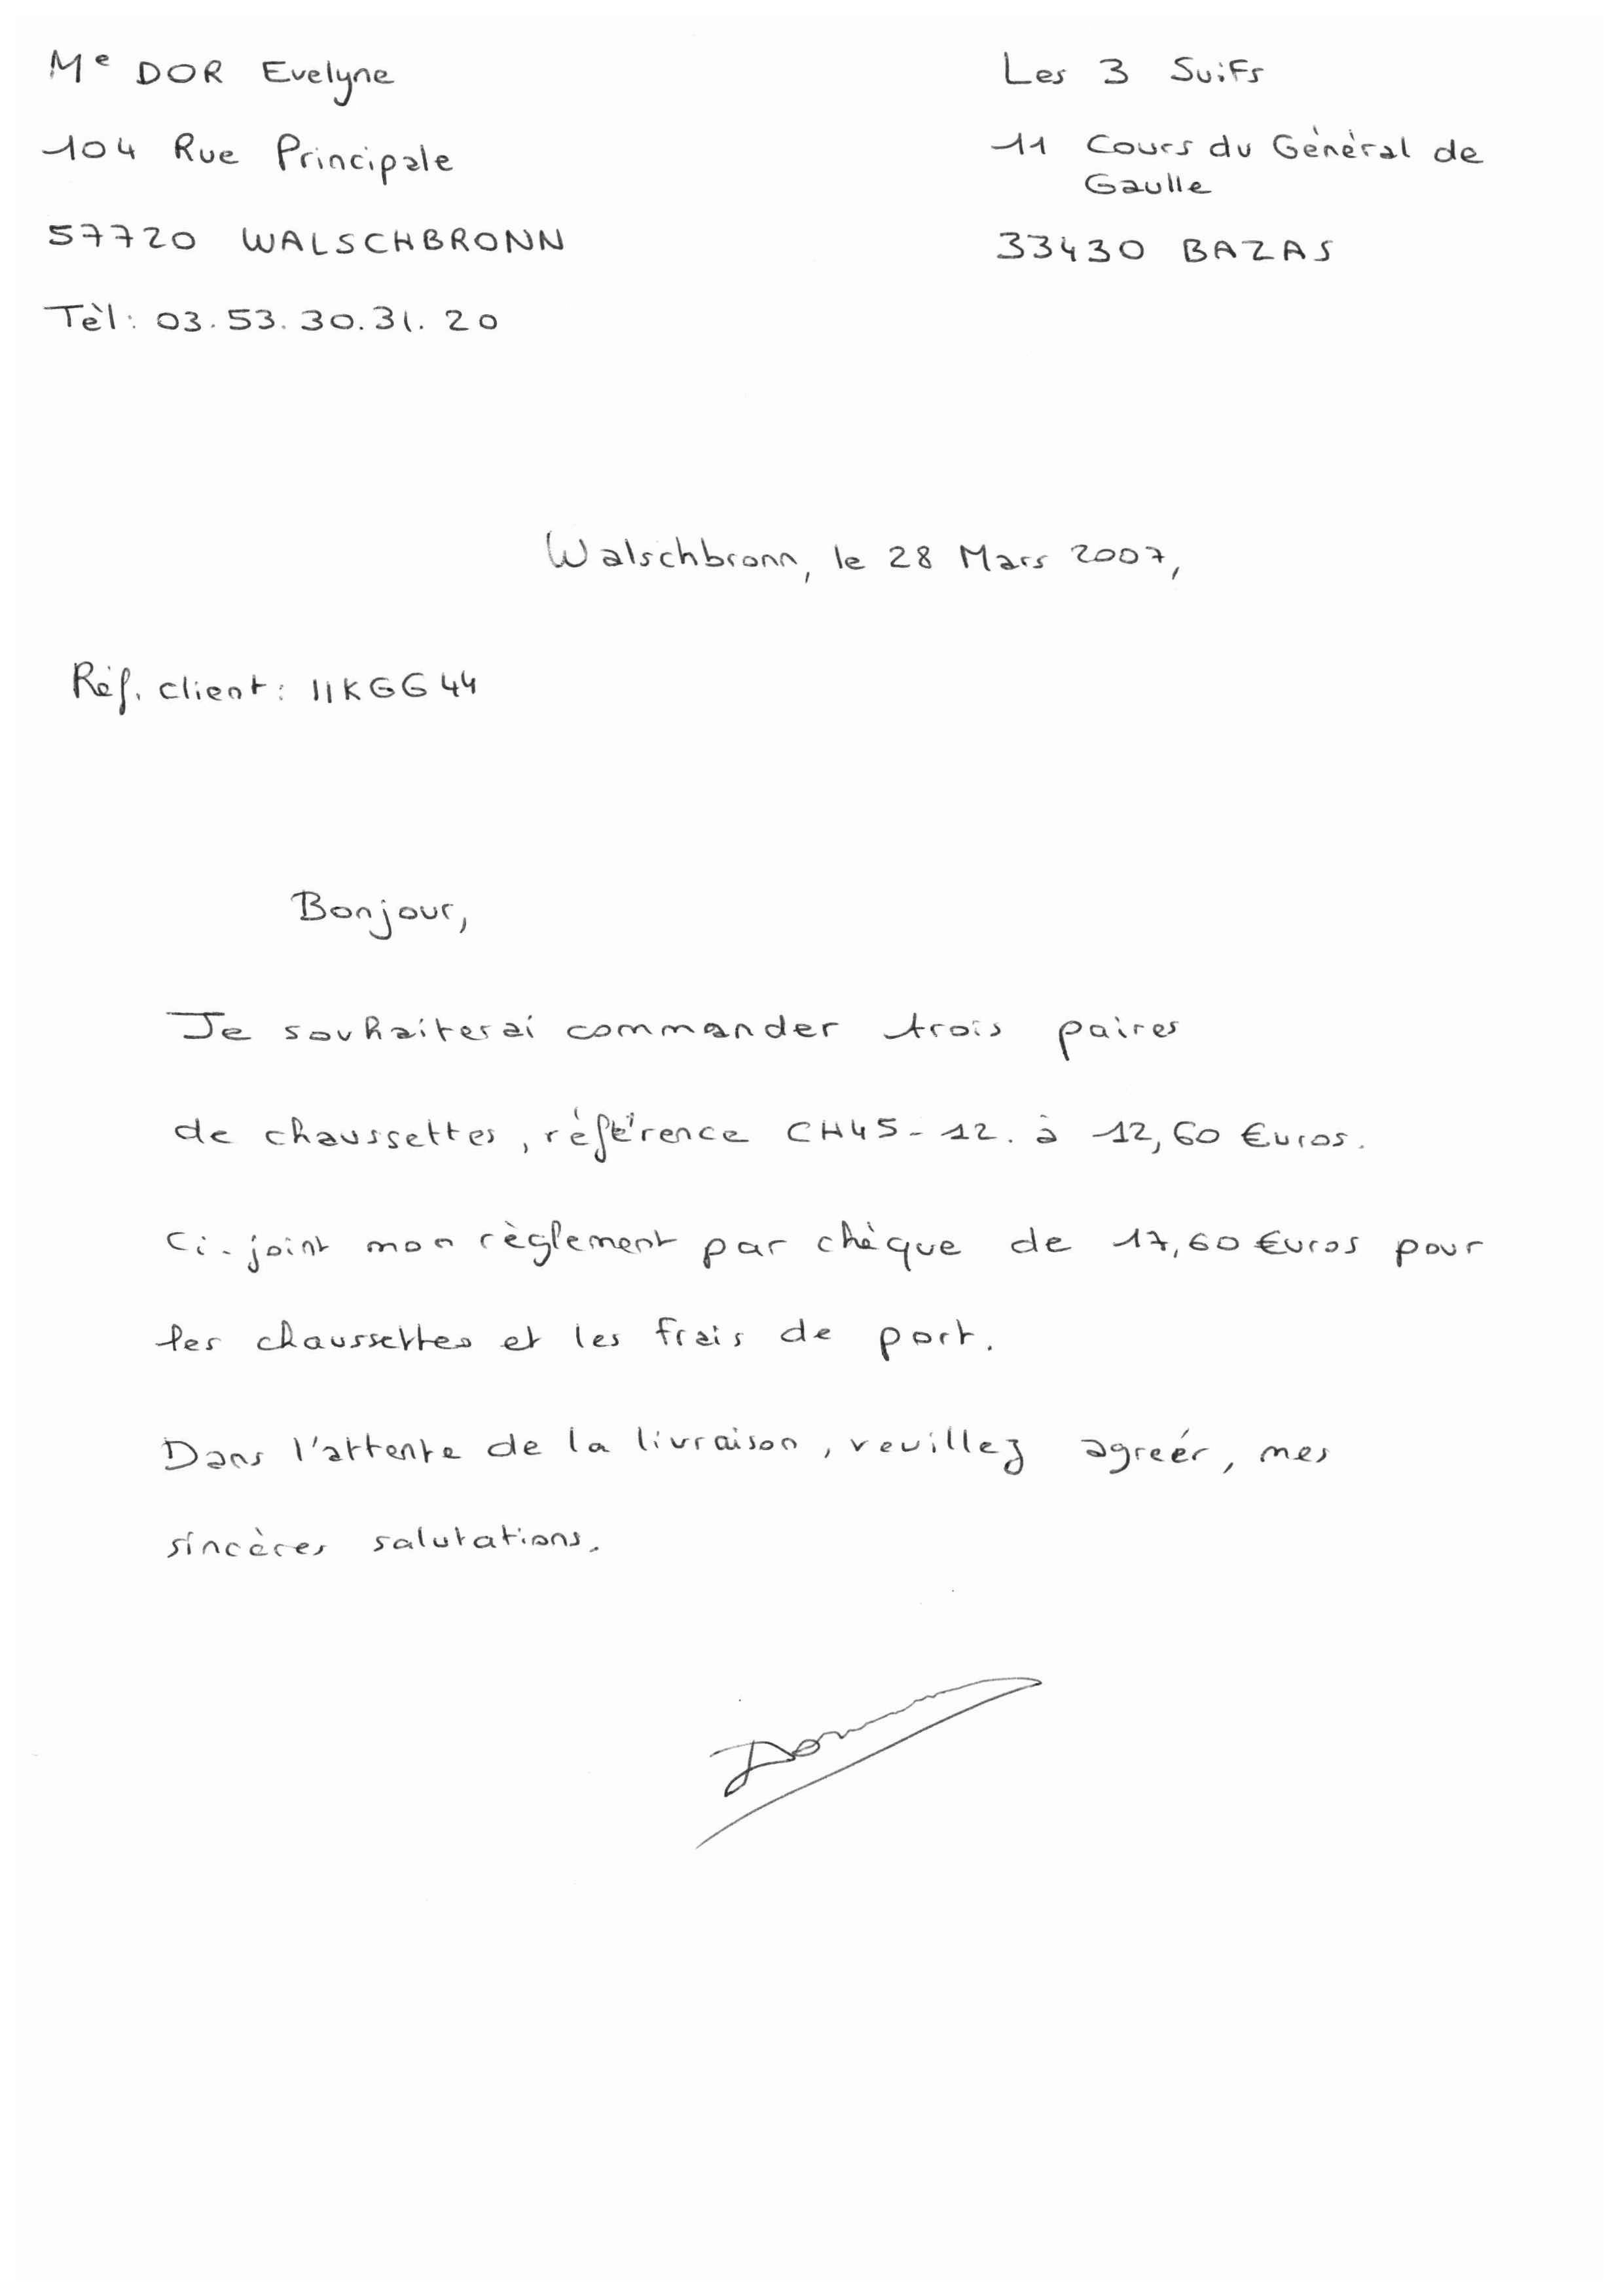 Me DOR Evelyne
104 Rue Principale
57720 WALSCHBRONN
Tèl: 03.53.30.31.20
Les 3 Suifs
11 Cours du Gènèral de
Gaulle
33430 BAZAS
Walschbronn, le 28 Mars 2007,
Réf. client: IIKGG44
Bonjour,
Je souhaiterai commander trois paires
de chaussettes, référence CH45-12. à 12,60 €uros.
Ci-joint mon règlement par chèque de 17,60 €uros pour
les chaussettes et les frais de port.
Dans l'attente de la livraison, veuillez agreér, mes
sincères salutations.